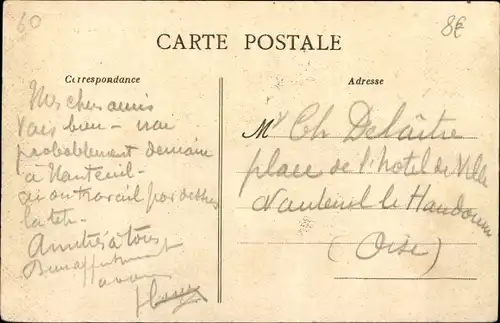 60
8€
CARTE POSTALE
Correspondance
Adresse
Mes chers amis
Vais bien -
probablement demain
à Nanteuil -
ai du travail par dessus
la tête -
Amitiés à tous
Mr Ch Delaître
place de l'hôtel de Ville
Nanteuil le Haudouin
(Oise)